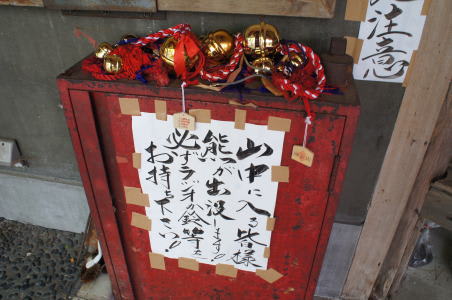 山中に入る皆様
熊が出没します!!
必ずラジオか鈴等を
お持ち下さい!!
注意